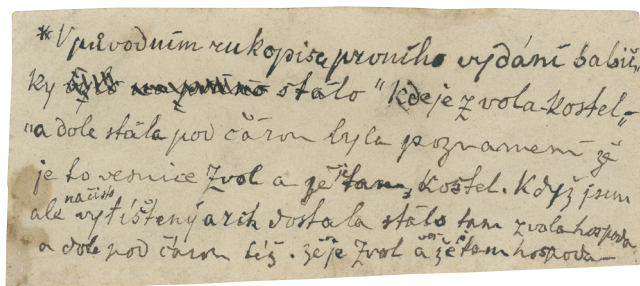 * V původním rukopise prvního vydání babič„
ky stálo "kde je z vola kostel„
"a dole stála pod čárou byla poznamení že
je to vesnice Zvol a že je tam kostel. Když jsem
ale na čisto vytištěný arch dostala stálo tam z vola hospoda
a dole pod čárou též. že je Zvol a že tam hospoda